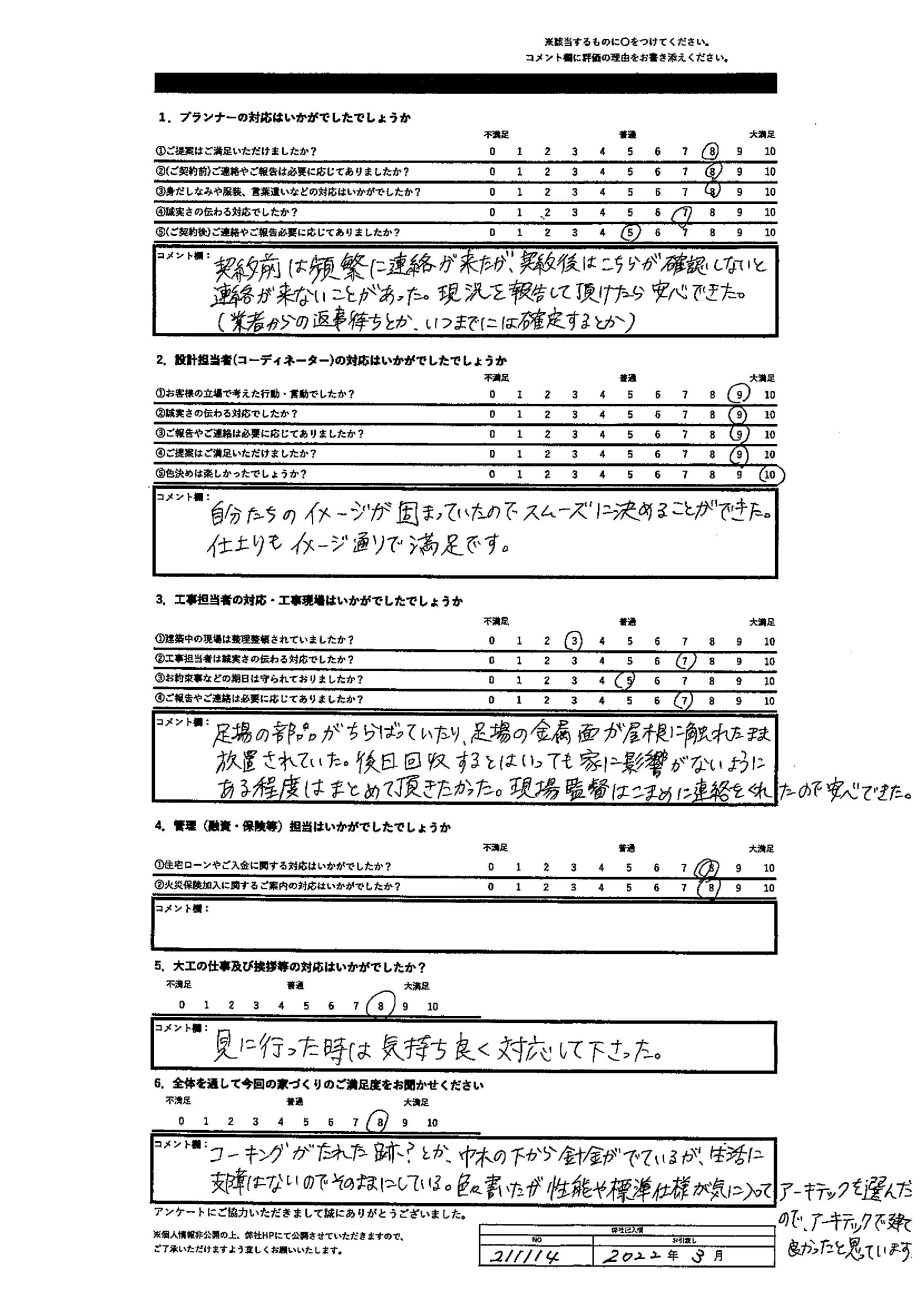 ※該当するものに〇をつけてください。
コメント欄に評価の理由をお書き添えください。
1．プランナーの対応はいかがでしたでしょうか
不満足 普通 大満足
①ご提案はご満足いただけましたか？ 0 1 2 3 4 5 6 7 8 9 10
②(ご契約前)ご連絡やご報告は必要に応じてありましたか？ 0 1 2 3 4 5 6 7 8 9 10
③身だしなみや服装、言葉遣いなどの対応はいかがでしたか？ 0 1 2 3 4 5 6 7 8 9 10
④誠実さの伝わる対応でしたか？ 0 1 2 3 4 5 6 7 8 9 10
⑤(ご契約後)ご連絡やご報告必要に応じてありましたか？ 0 1 2 3 4 5 6 7 8 9 10
コメント欄：
契約前は頻繁に連絡が来たが、契約後はこちらが確認しないと
連絡が来ないことがあった。現況を報告して頂けたら安心できた。
(業者からの返事待ちとか、いつまでには確定するとか)
2．設計担当者(コーディネーター)の対応はいかがでしたでしょうか
不満足 普通 大満足
①お客様の立場で考えた行動・言動でしたか？ 0 1 2 3 4 5 6 7 8 9 10
②誠実さの伝わる対応でしたか？ 0 1 2 3 4 5 6 7 8 9 10
③ご報告やご連絡は必要に応じてありましたか？ 0 1 2 3 4 5 6 7 8 9 10
④ご提案はご満足いただけましたか？ 0 1 2 3 4 5 6 7 8 9 10
⑤色決めは楽しかったでしょうか？ 0 1 2 3 4 5 6 7 8 9 10
コメント欄：
自分たちのイメージが固まっていたのでスムーズに決めることができた。
仕上りもイメージ通りで満足です。
3．工事担当者の対応・工事現場はいかがでしたでしょうか
不満足 普通 大満足
①建築中の現場は整理整頓されていましたか？ 0 1 2 3 4 5 6 7 8 9 10
②工事担当者は誠実さの伝わる対応でしたか？ 0 1 2 3 4 5 6 7 8 9 10
③お約束事などの期日は守られておりましたか？ 0 1 2 3 4 5 6 7 8 9 10
④ご報告やご連絡は必要に応じてありましたか？ 0 1 2 3 4 5 6 7 8 9 10
コメント欄：
足場の部品がちらばっていたり、足場の金属面が屋根に触れたまま
放置されていた。後日回収するとはいっても家に影響がないように
ある程度はまとめて頂きたかった。現場監督はこまめに連絡をくれたので安心できた。
4．管理（融資・保険等）担当はいかがでしたでしょうか
不満足 普通 大満足
①住宅ローンやご入金に関する対応はいかがでしたか？ 0 1 2 3 4 5 6 7 8 9 10
②火災保険加入に関するご案内の対応はいかがでしたか？ 0 1 2 3 4 5 6 7 8 9 10
コメント欄：
5．大工の仕事及び挨拶等の対応はいかがでしたか？
不満足 普通 大満足
0 1 2 3 4 5 6 7 8 9 10
コメント欄：
見に行った時は気持ち良く対応して下さった。
6．全体を通して今回の家づくりのご満足度をお聞かせください
不満足 普通 大満足
0 1 2 3 4 5 6 7 8 9 10
コメント欄：
コーキングがたれた跡？とか、巾木の下から針金がでているが、生活に
支障はないのでそのままにしている。色々書いたが性能や標準仕様が気に入って
アーキテックを選んだ
ので、アーキテックで建て
良かったと思っています
アンケートにご協力いただきまして誠にありがとうございました。
※個人情報非公開の上、弊社HPにて公開させていただきますので、
ご了承いただけますよう宜しくお願いいたします。
弊社記入欄
NO お引渡し
211114 2022年 3月